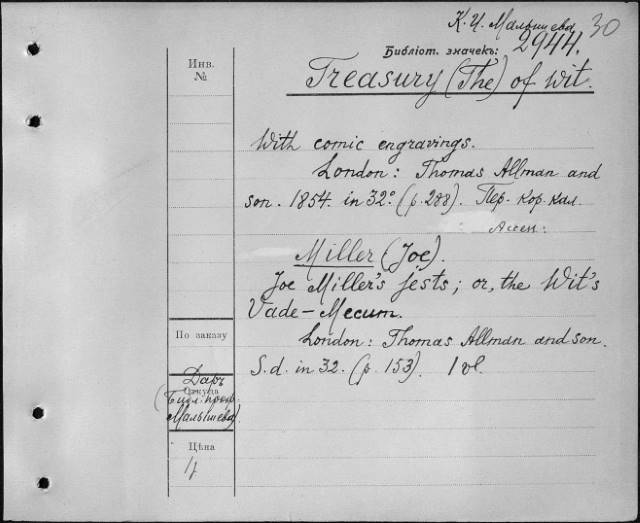 К. И. Малышева 30
Библіот. значекъ: 2944.
Инв.
№
Treasury (The) of Wit.
With comic engravings.
London: Thomas Allman and
son. 1854. in 32° (p. 288). Пер. кор. кал.
Miller (Joe).
Joe Miller's jests; or, the Wit's
Vade-Mecum.
London: Thomas Allman and son.
S. d. in 32. (p. 153). 1 vl.
По заказу
Даръ
Откуда
(Библ. проф.
Малышева).
Цѣна